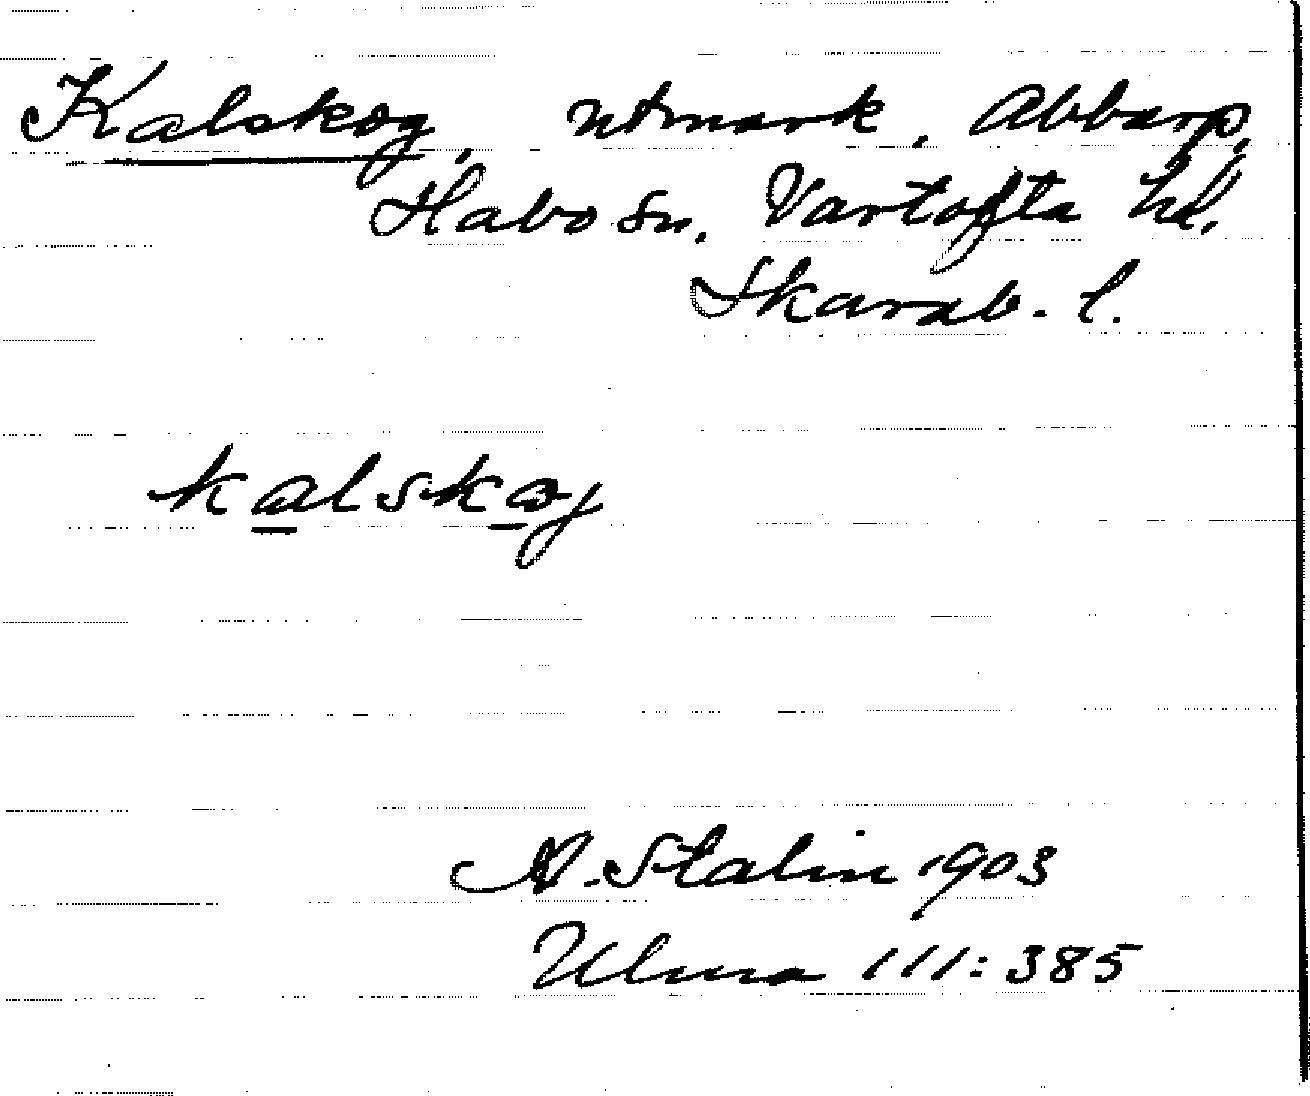 Kalskog, utmark, Abbarp,
Habo sn, Vartofta hd,
Skarab. l.
kalskoj
A. Stalin 1903
Ulma 111:385